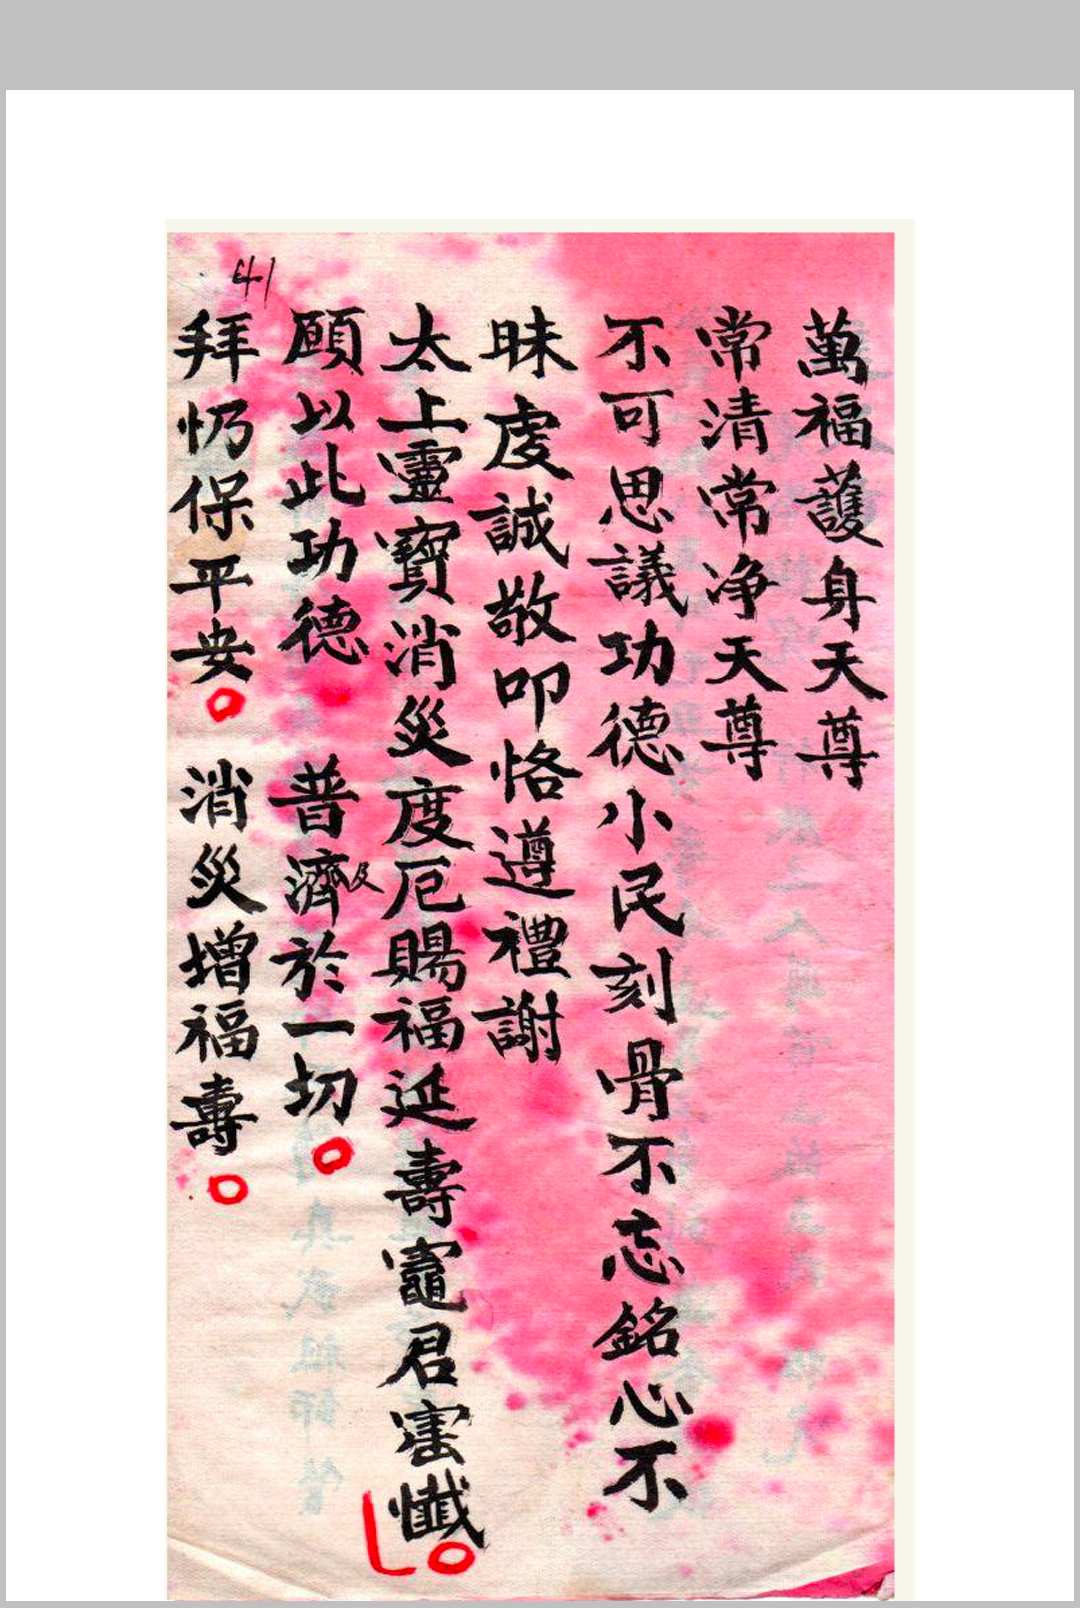 萬福護身天尊
常清常净天尊
不可思議功德小民刻骨不忘銘心不
昧虔誠敬叩恪遵禮謝
太上靈寶消災度厄賜福延壽竈君寶懺。
願以此功德 普濟及於一切。
拜仍保平安。 消災增福壽。
41